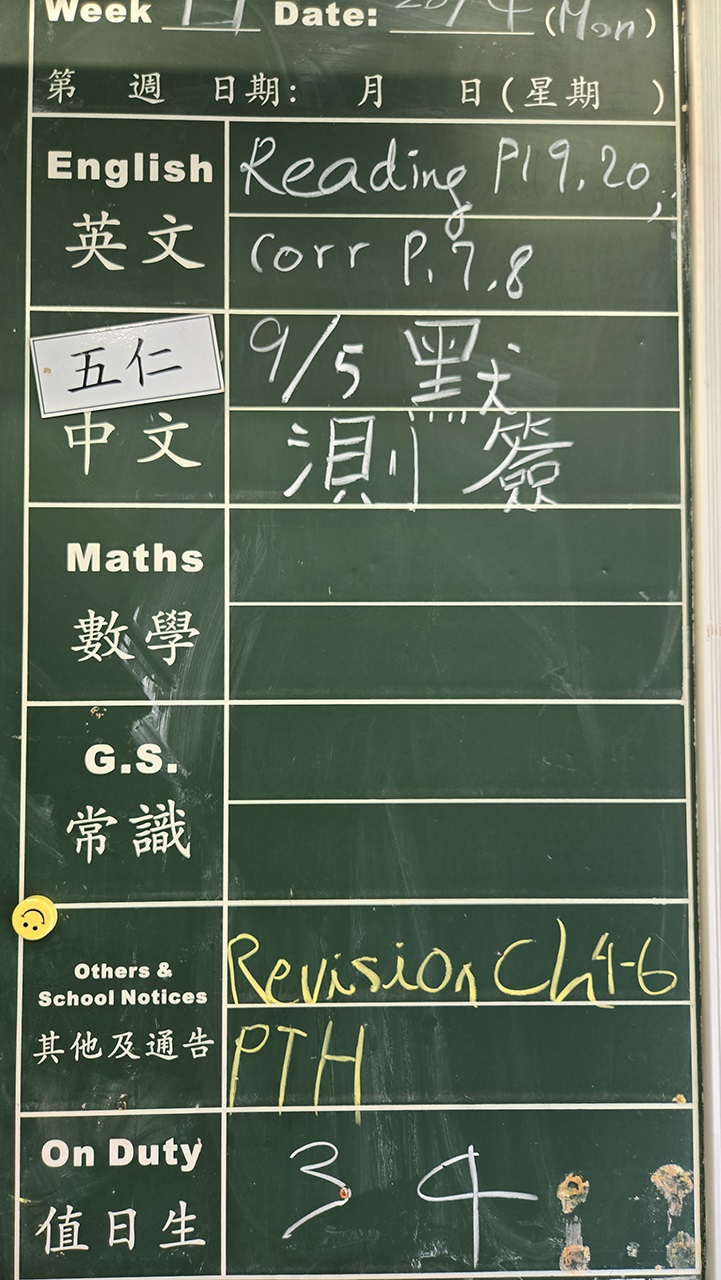 Week Date: (Mon)
第 週 日期: 月 日(星期 )
English 英文
Reading P19.20,
Corr P.7.8
五仁
中文
9/5 默
測 簽
Maths
數學
G.S.
常識
Others &
School Notices
其他及通告
Revision Ch4-6
PTH
On Duty
值日生
3 4